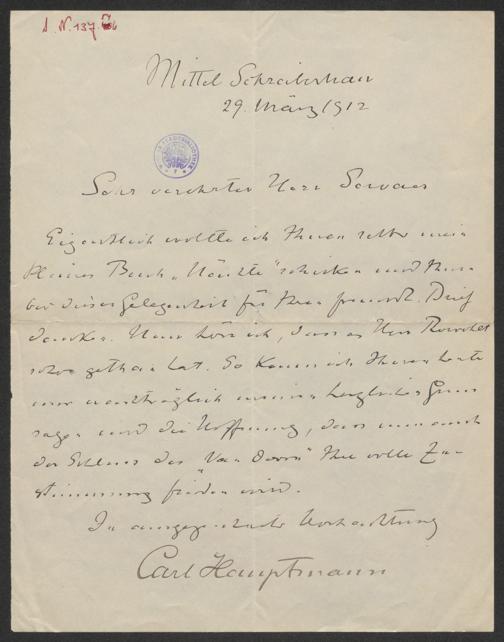 I. N. 137.
Mittel Schreiberhau
29. März 1912
Sehr verehrter Herr Servaes
Eigentlich wollte ich Ihnen selbst mein
kleines Buch „Nächte“ schicken und Ihnen
bei dieser Gelegenheit für Ihren freundl. Brief
danken. Nun höre ich, dass es Herr Rowohlt
schon gethan hat. So kann ich Ihnen heute
nur nachträglich meinen herzlichen Gruss
sagen und die Hoffnung, dass nun auch
der Schluss des „Van Doorn“ Ihre volle Zu-
stimmung finden wird.
In ausgezeichneter Hochachtung
Carl Hauptmann